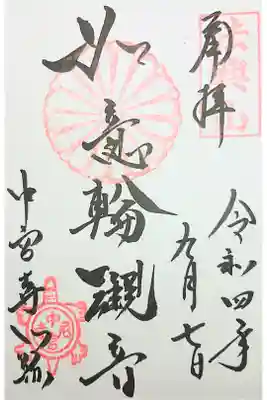 奉拝
法興山
令和四年
九月七日
如意輪觀音
中宮寺門跡